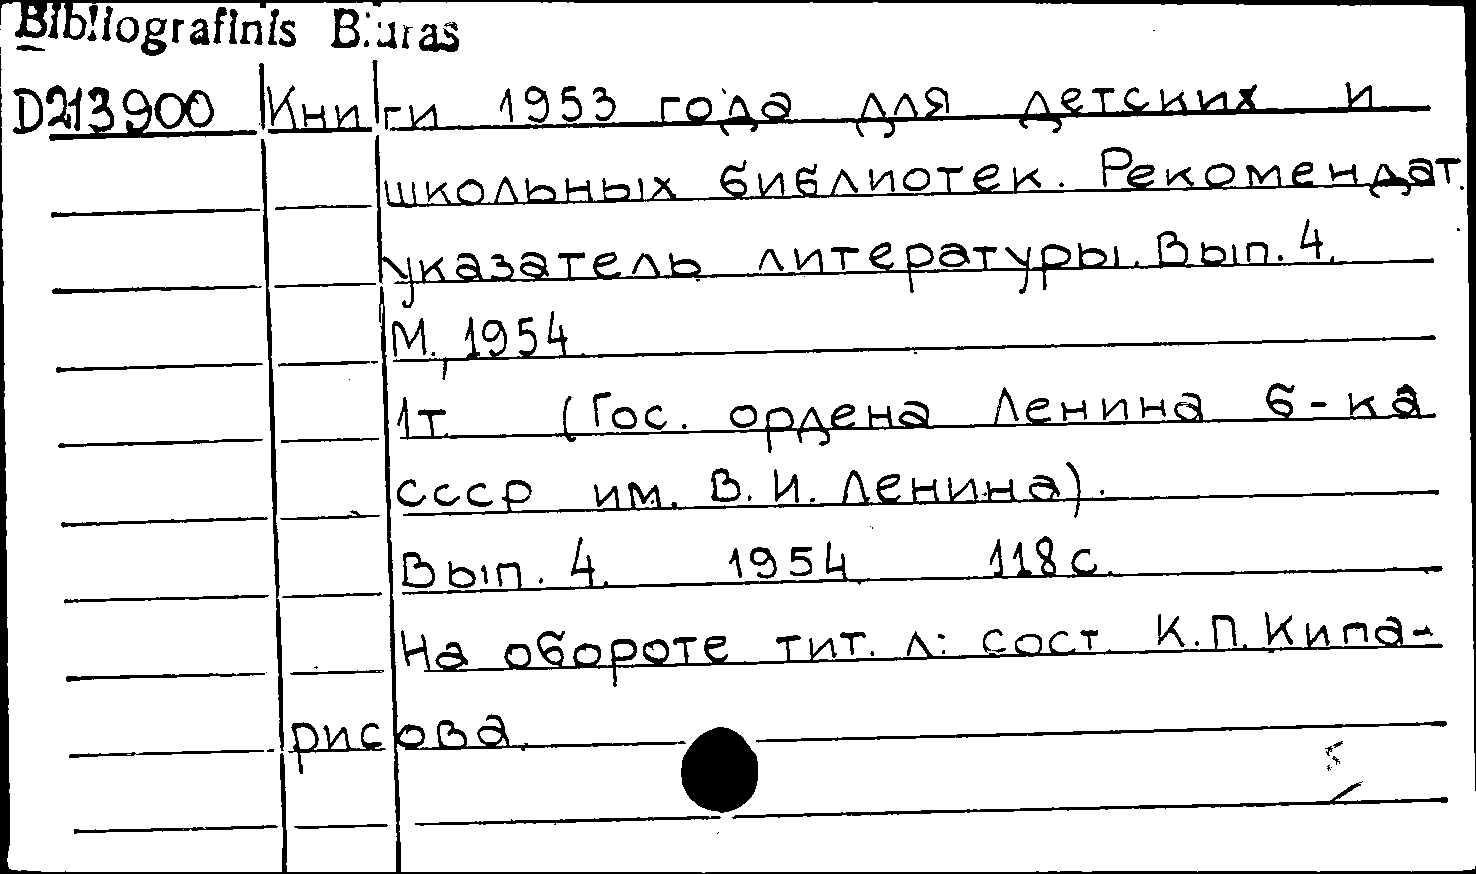 Bibliografinis Biuras
D213900 Книги 1953 года для детских и
школьных библиотек. Рекомендат.
указатель литературы. Вып. 4.
М., 1954.
1т. (Гос. ордена Ленина б-ка
СССР им. В. И. Ленина).
Вып. 4. 1954. 118с.
На обороте тит. л: сост. К.П. Кипа-
рисова.